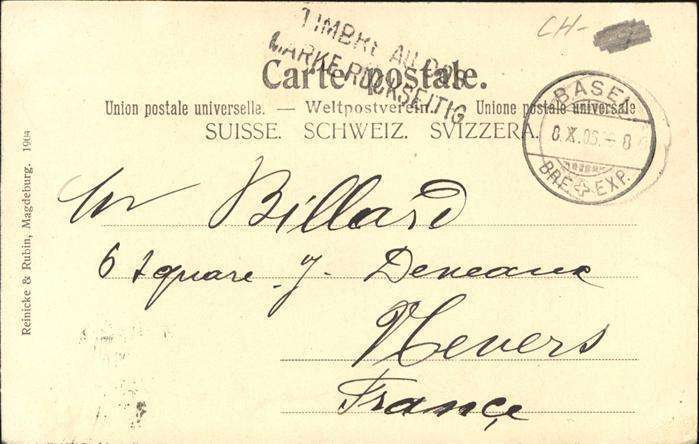 CH-
TIMBRE AU DOS
MARKE RÜCKSEITIG
Carte postale.
Union postale universelle. — Weltpostverein. — Unione postale universale
SUISSE. SCHWEIZ. SVIZZERA.
BASEL
8.X.05.-8
BRF. EXP.
Reinicke & Rubin, Magdeburg. 1904
Mr Billard
6 square J.
Nevers
France